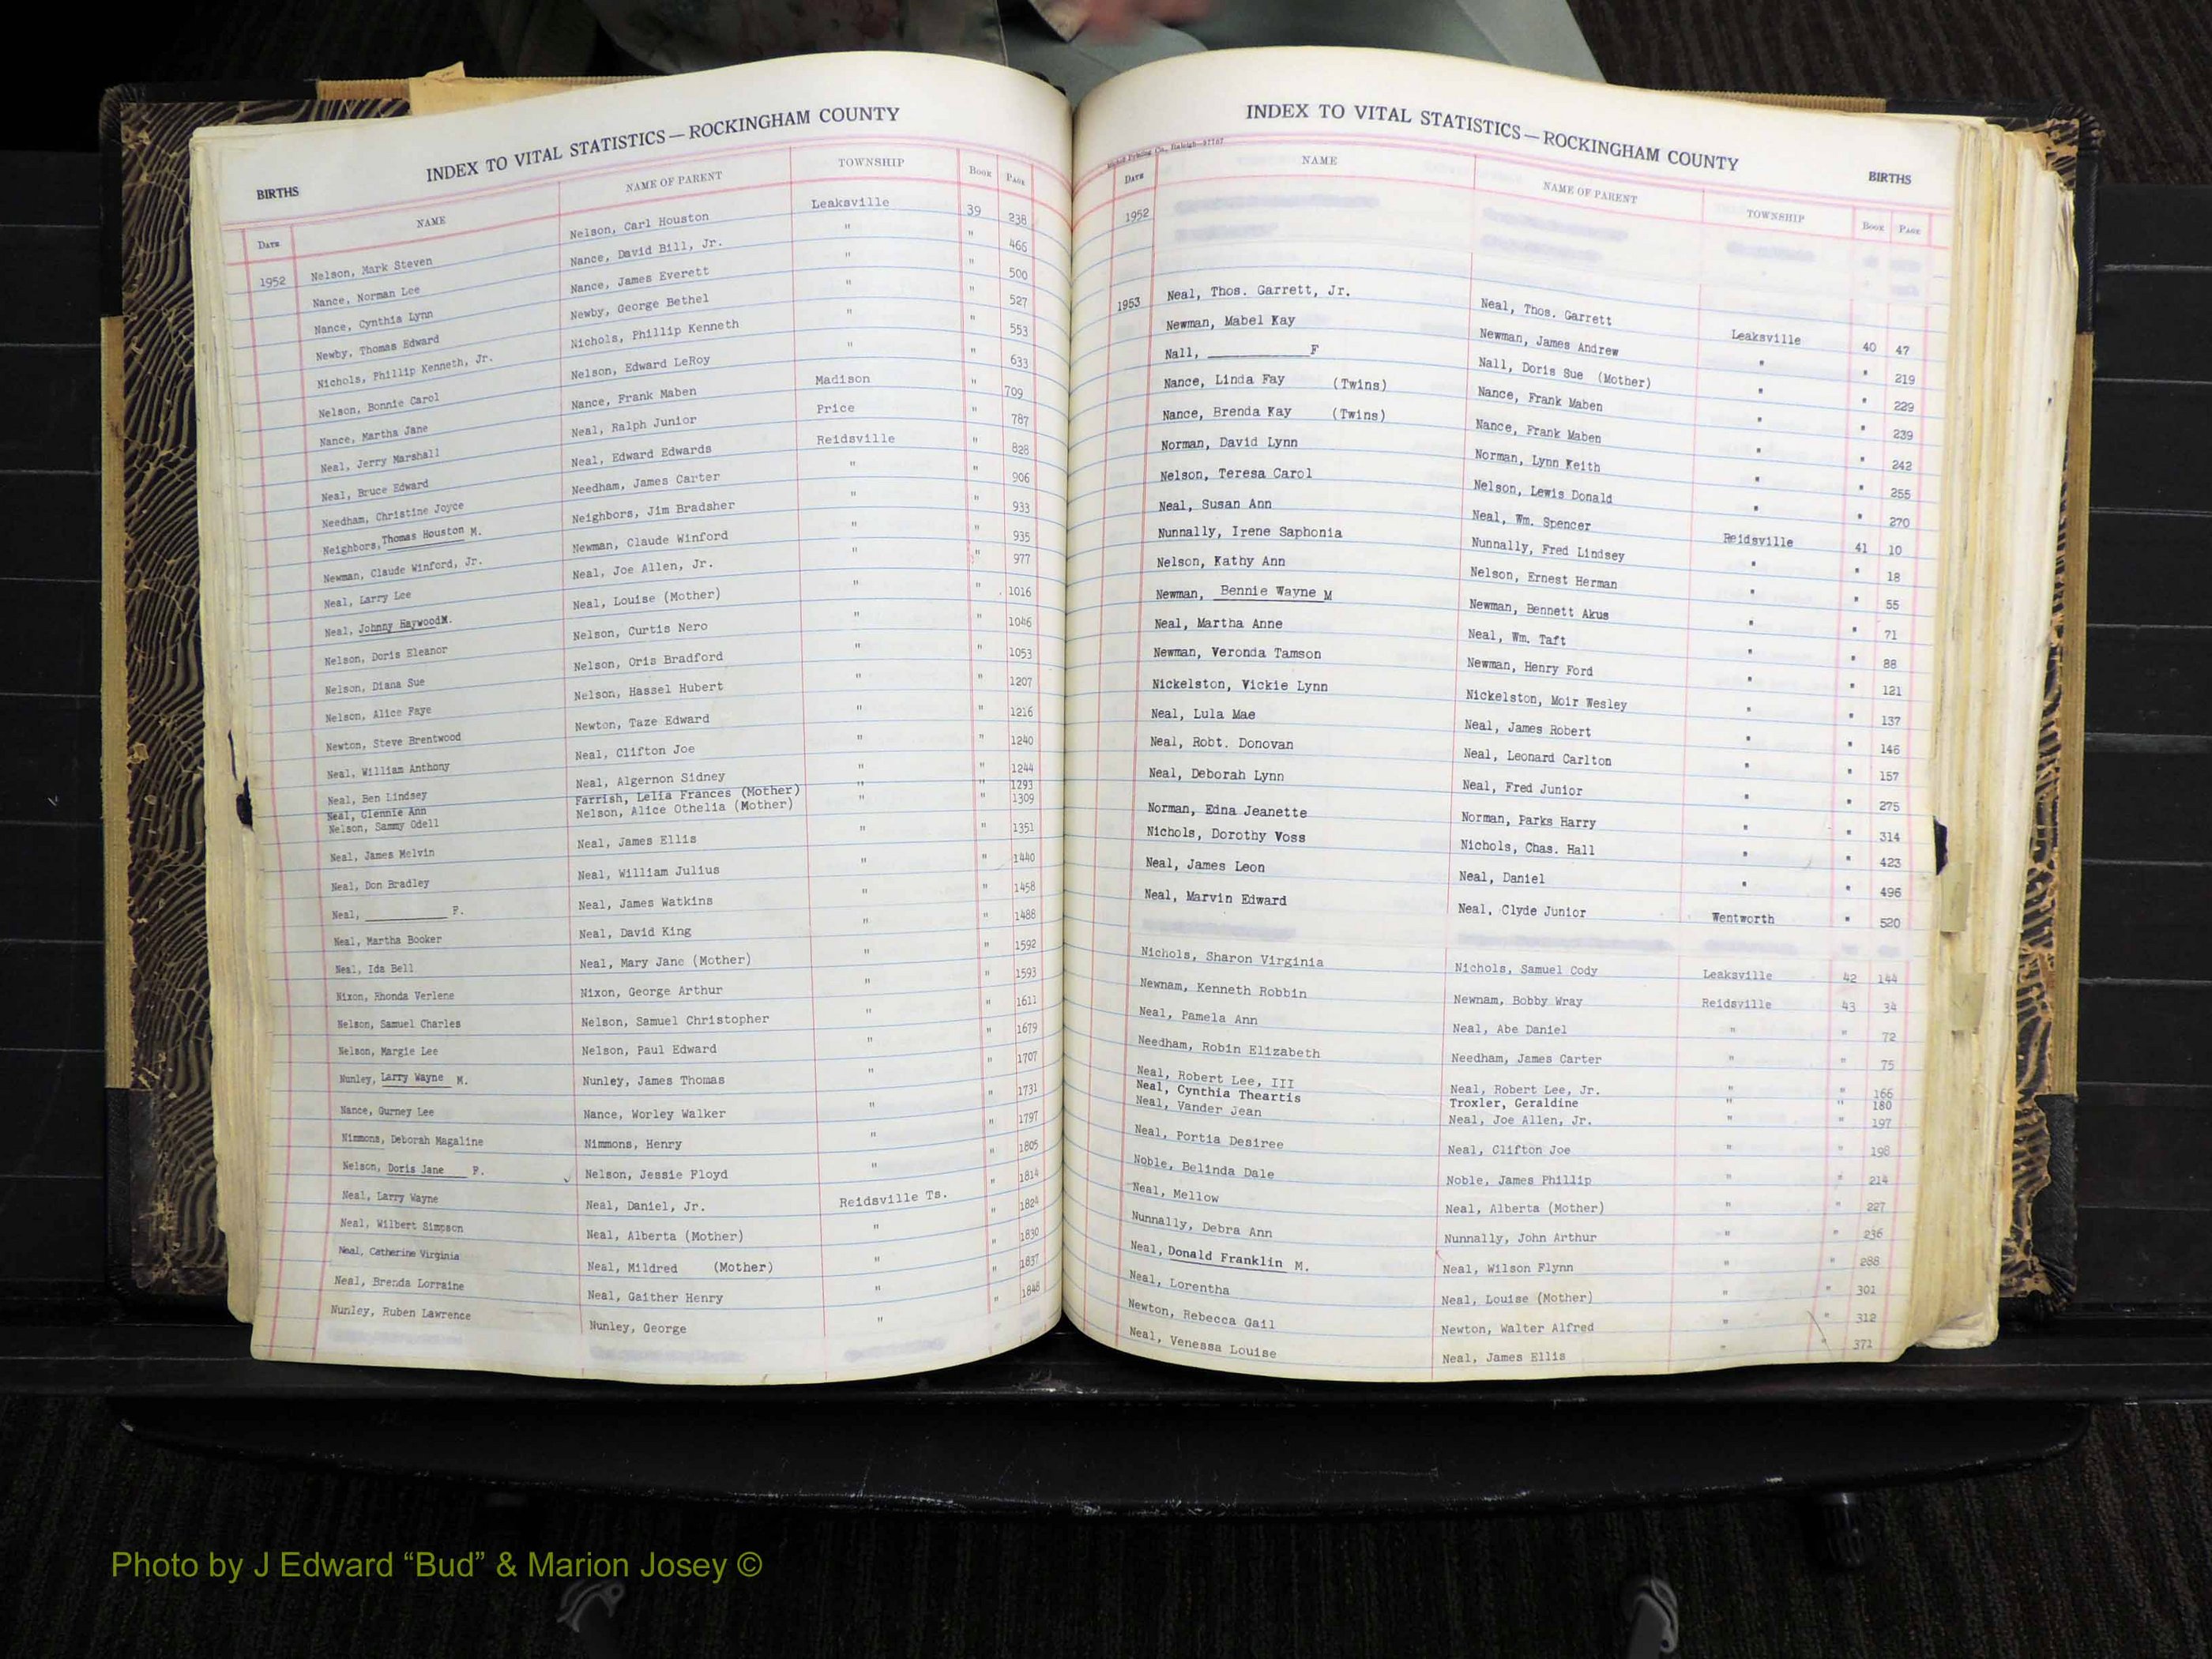 INDEX TO VITAL STATISTICS—ROCKINGHAM COUNTY
BIRTHS
Date NAME NAME OF PARENT TOWNSHIP Book Page
1952 Nelson, Mark Steven Nelson, Carl Houston Leaksville 39 238
Nance, Norman Lee Nance, David Bill, Jr. " " 466
Nance, Cynthia Lynn Nance, James Everett " " 500
Newby, Thomas Edward Newby, George Bethel " " 527
Nichols, Phillip Kenneth, Jr. Nichols, Phillip Kenneth " " 553
Nelson, Bonnie Carol Nelson, Edward LeRoy " " 633
Nance, Martha Jane Nance, Frank Maben Madison " 709
Neal, Jerry Marshall Neal, Ralph Junior Price " 787
Neal, Bruce Edward Neal, Edward Edwards Reidsville " 828
Needham, Christine Joyce Needham, James Carter " " 906
Neighbors, Thomas Houston M. Neighbors, Jim Bradsher " " 933
Newman, Claude Winford, Jr. Newman, Claude Winford " " 935
Neal, Larry Lee Neal, Joe Allen, Jr. " " 977
Neal, Johnny Haywood M. Neal, Louise (Mother) " " 1016
Nelson, Doris Eleanor Nelson, Curtis Nero " " 1046
Nelson, Diana Sue Nelson, Oris Bradford " " 1053
Nelson, Alice Faye Nelson, Hassel Hubert " " 1207
Newton, Steve Brentwood Newton, Taze Edward " " 1216
Neal, William Anthony Neal, Clifton Joe " " 1240
Neal, Ben Lindsey Neal, Algernon Sidney " " 1244
Neal, Glennie Ann Farrish, Lelia Frances (Mother) " " 1293
Nelson, Sammy Odell Nelson, Alice Othelia (Mother) " " 1309
Neal, James Melvin Neal, James Ellis " " 1351
Neal, Don Bradley Neal, William Julius " " 1440
Neal, __________ F. Neal, James Watkins " " 1458
Neal, Martha Booker Neal, David King " " 1488
Neal, Ida Bell Neal, Mary Jane (Mother) " " 1592
Nixon, Rhonda Verlene Nixon, George Arthur " " 1593
Nelson, Samuel Charles Nelson, Samuel Christopher " " 1611
Nelson, Margie Lee Nelson, Paul Edward " " 1679
Nunley, Larry Wayne M. Nunley, James Thomas " " 1707
Nance, Gurney Lee Nance, Worley Walker " " 1731
Nimmons, Deborah Magaline Nimmons, Henry " " 1797
Nelson, Doris Jane F. Nelson, Jessie Floyd " " 1805
Neal, Larry Wayne Neal, Daniel, Jr. Reidsville Ts. " 1814
Neal, Wilbert Simpson Neal, Alberta (Mother) " " 1824
Neal, Catherine Virginia Neal, Mildred (Mother) " " 1830
Neal, Brenda Lorraine Neal, Gaither Henry " " 1837
Nunley, Ruben Lawrence Nunley, George " " 1848
INDEX TO VITAL STATISTICS—ROCKINGHAM COUNTY
BIRTHS
Date NAME NAME OF PARENT TOWNSHIP Book Page
1952
1953 Neal, Thos. Garrett, Jr. Neal, Thos. Garrett Leaksville 40 47
Newman, Mabel Kay Newman, James Andrew " " 219
Nall, __________ F Nall, Doris Sue (Mother) " " 229
Nance, Linda Fay (Twins) Nance, Frank Maben " " 239
Nance, Brenda Kay (Twins) Nance, Frank Maben " " 242
Norman, David Lynn Norman, Lynn Keith " " 255
Nelson, Teresa Carol Nelson, Lewis Donald " " 270
Neal, Susan Ann Neal, Wm. Spencer Reidsville 41 10
Nunnally, Irene Saphonia Nunnally, Fred Lindsey " " 18
Nelson, Kathy Ann Nelson, Ernest Herman " " 55
Newman, Bennie Wayne M Newman, Bennett Akus " " 71
Neal, Martha Anne Neal, Wm. Taft " " 88
Newman, Veronda Tamson Newman, Henry Ford " " 121
Nickelston, Vickie Lynn Nickelston, Moir Wesley " " 137
Neal, Lula Mae Neal, James Robert " " 146
Neal, Robt. Donovan Neal, Leonard Carlton " " 157
Neal, Deborah Lynn Neal, Fred Junior " " 275
Norman, Edna Jeanette Norman, Parks Harry " " 314
Nichols, Dorothy Voss Nichols, Chas. Hall " " 423
Neal, James Leon Neal, Daniel " " 496
Neal, Marvin Edward Neal, Clyde Junior Wentworth " 520
Nichols, Sharon Virginia Nichols, Samuel Cody Leaksville 42 144
Newnam, Kenneth Robbin Newnam, Bobby Wray Reidsville 43 34
Neal, Pamela Ann Neal, Abe Daniel " " 72
Needham, Robin Elizabeth Needham, James Carter " " 75
Neal, Robert Lee, III Neal, Robert Lee, Jr. " " 166
Neal, Cynthia Theartis Troxler, Geraldine " " 180
Neal, Vander Jean Neal, Joe Allen, Jr. " " 197
Neal, Portia Desiree Neal, Clifton Joe " " 198
Noble, Belinda Dale Noble, James Phillip " " 214
Neal, Mellow Neal, Alberta (Mother) " " 227
Nunnally, Debra Ann Nunnally, John Arthur " " 236
Neal, Donald Franklin M. Neal, Wilson Flynn " " 288
Neal, Lorentha Neal, Louise (Mother) " " 301
Newton, Rebecca Gail Newton, Walter Alfred " " 312
Neal, Venessa Louise Neal, James Ellis " " 371
Photo by J Edward “Bud” & Marion Josey ©